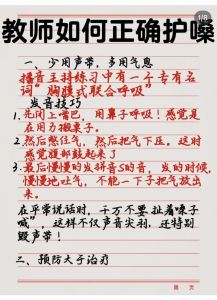 1/8
教师如何正确护嗓
一、少用声带，多用气息
播音主持练习中有一个专有名
词“胸腹式联合呼吸”
发音技巧
1.先闭上嘴巴，用鼻子呼吸！感觉是
在用力搬桌子。
2.然后憋住气，然后把气下压。这时
感觉腹部鼓起来了
3.最后慢慢的发拼音S的音，发的时候，
慢慢地吐气，不能一下子把气放出
来。
在平常说话时，千万不要扯着嗓子
喊”，这样不仅声音尖刺，还特别
毁声带！
二、预防大于治疗
第 页